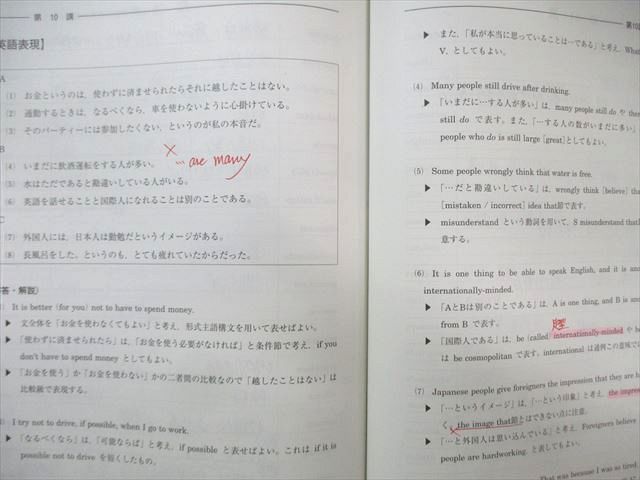 第 10 講
英語表現】
A
(1) お金というのは,使わずに済ませられたらそれに越したことはない。
(2) 通勤するときは,なるべくなら,車を使わないように心掛けている。
(3) そのパーティーには参加したくない,というのが私の本音だ。
B
(4) いまだに飲酒運転をする人が多い。
× … are many
(5) 水はただであると勘違いしている人がいる。
(6) 英語を話せることと国際人になれることは別のことである。
C
(7) 外国人には,日本人は勤勉だというイメージがある。
(8) 長風呂をした。というのも,とても疲れていたからだった。
答・解説)
It is better (for you) not to have to spend money.
▶ 文全体を「お金を使わなくてもよい」と考え,形式主語構文を用いて表せばよい。
▶ 「使わずに済ませられたら」は,「お金を使う必要がなければ」と条件節で考え,if you
don't have to spend money としてもよい。
▶ 「お金を使う」か「お金を使わない」かの二者間の比較なので「越したことはない」は
比較級で表現する。
I try not to drive, if possible, when I go to work.
▶ 「なるべくなら」は,「可能ならば」と考え,if possible と表せばよい。これは if it is
possible not to drive を短くしたもの。
第10
▶ また,「私が本当に思っていることは…である」と考え,What
V. としてもよい。
(4) Many people still drive after drinking.
▶ 「いまだに…する人が多い」は,many people still do や ther
still do で表す。また,「…する人の数がいまだに多い」
people who do is still large [great] としてもよい。
(5) Some people wrongly think that water is free.
▶ 「…だと勘違いしている」は,wrongly think [believe] tha
[mistaken / incorrect] idea that節で表す。
▶ misunderstand という動詞を用いて,S misunderstand that
意する。
(6) It is one thing to be able to speak English, and it is an
internationally-minded.
▶ 「AとBは別のことである」は,A is one thing, and B is an
from B で表す。
▶ 「国際人である」は,be (called) internationally-minded や b
は be cosmopolitan で表す。international は通例この意味では
(7) Japanese people give foreigners the impression that they are h
▶ 「…というイメージ」は,「…という印象」と考え,the impres
く,the image that節とはできない点に注意。
×
▶ 「…と外国人は思い込んでいる」と考え,Foreigners believe
people are hardworking. と表してもよい。
That was because I was so tired